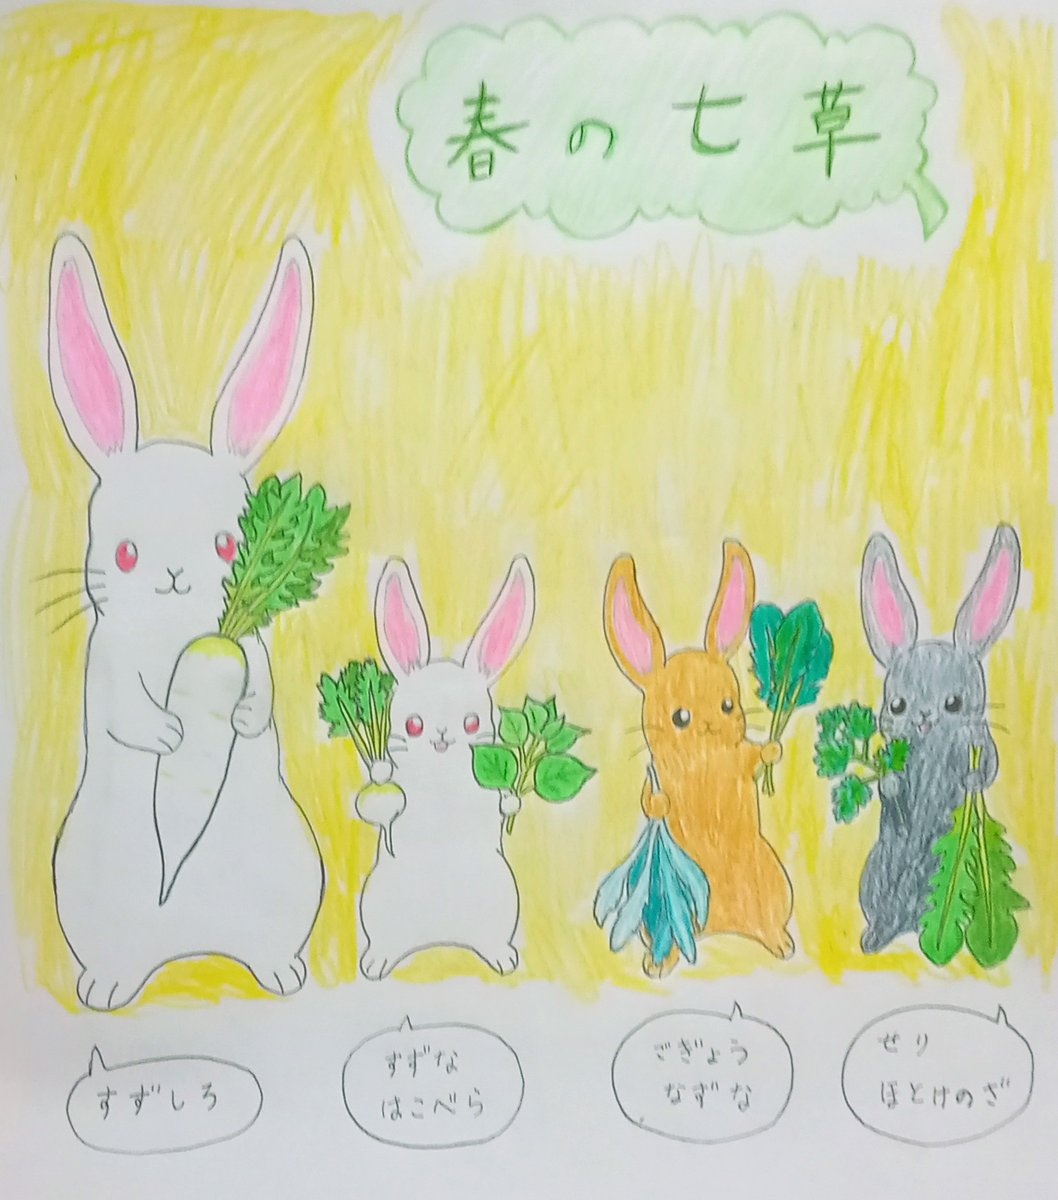 春の七草
すずしろ
すずな
はこべら
ごぎょう
なずな
せり
ほとけのざ